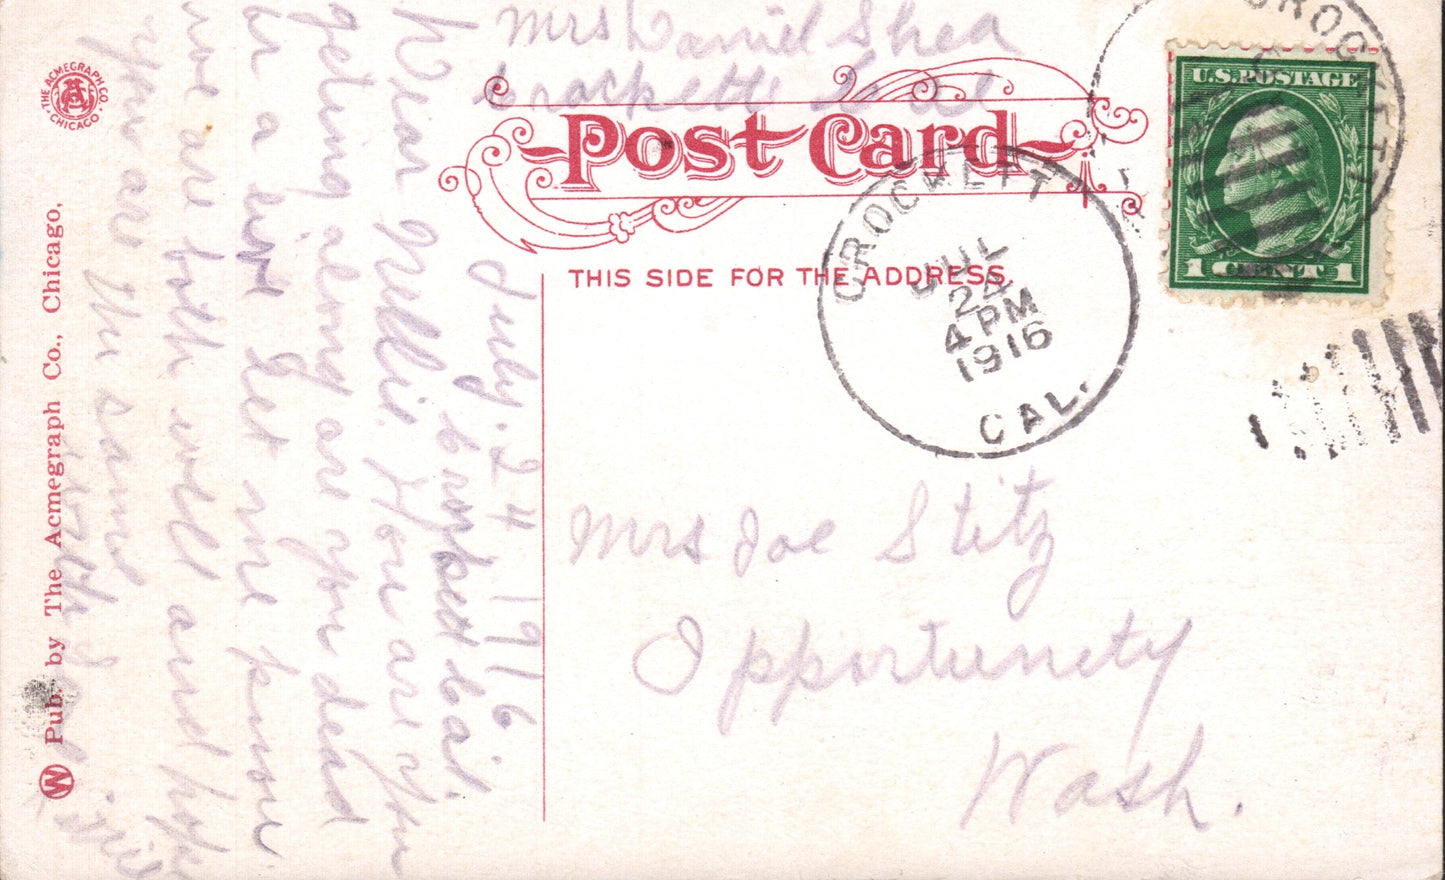 Mrs Daniel Shea
Crockette Cal
Post Card
THIS SIDE FOR THE ADDRESS.
U.S. POSTAGE
1 CENT 1
CROCKETT
CROCKETT
JUL
24
4 PM
1916
CAL.
THE ACMEGRAPH CO. CHICAGO
W Pub. by The Acmegraph Co., Chicago.
July. 24 1916
Dear Nellie. How are you
geting along are you dead
or a live let me know
we are both well and hope
you are the same
Mrs Joe Stitz
Opportunety
Wash.